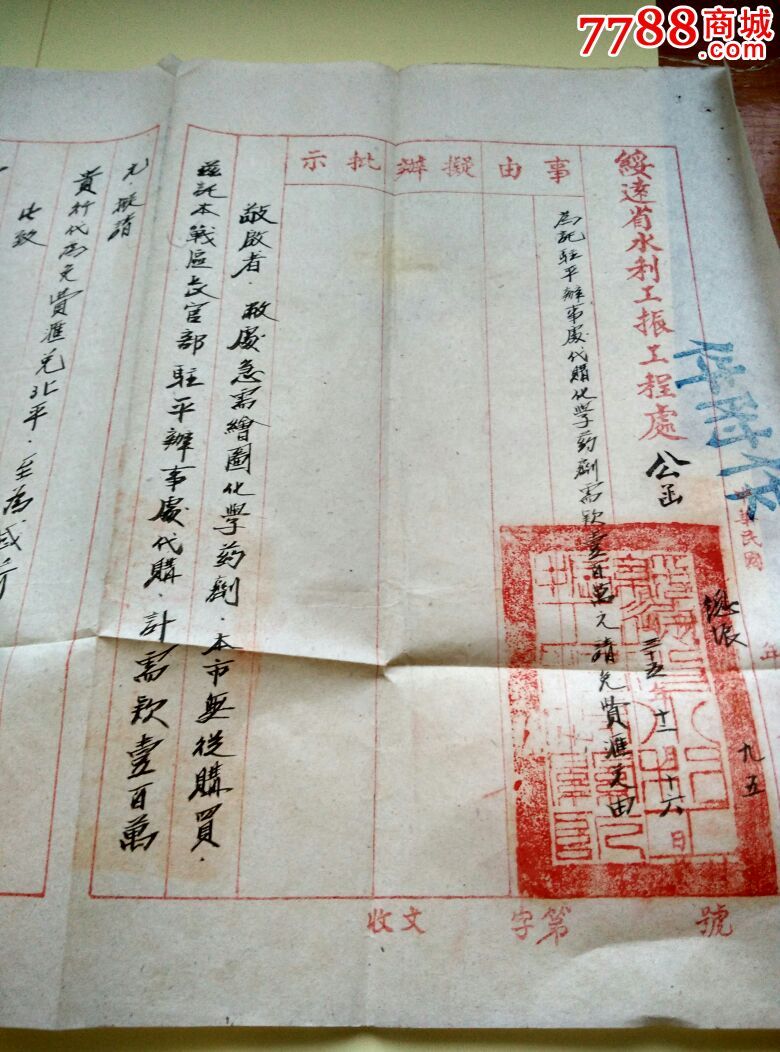 7788商城
.com
綏遠省水利工振工程處公函
事由擬辦批示
為託駐平辦事處代購化學药劑需款壹百萬元請免費滙兌由
中華民國 年
三十五年十二月十六日
九五
收文 字第 號
敬啟者．敝處急需繪圖化學药劑．本市無从購買．
茲託本戰區長官部駐平辦事處代購．計需款壹百萬
元．擬請
貴行代為免費滙兌北平．至為感荷
此致